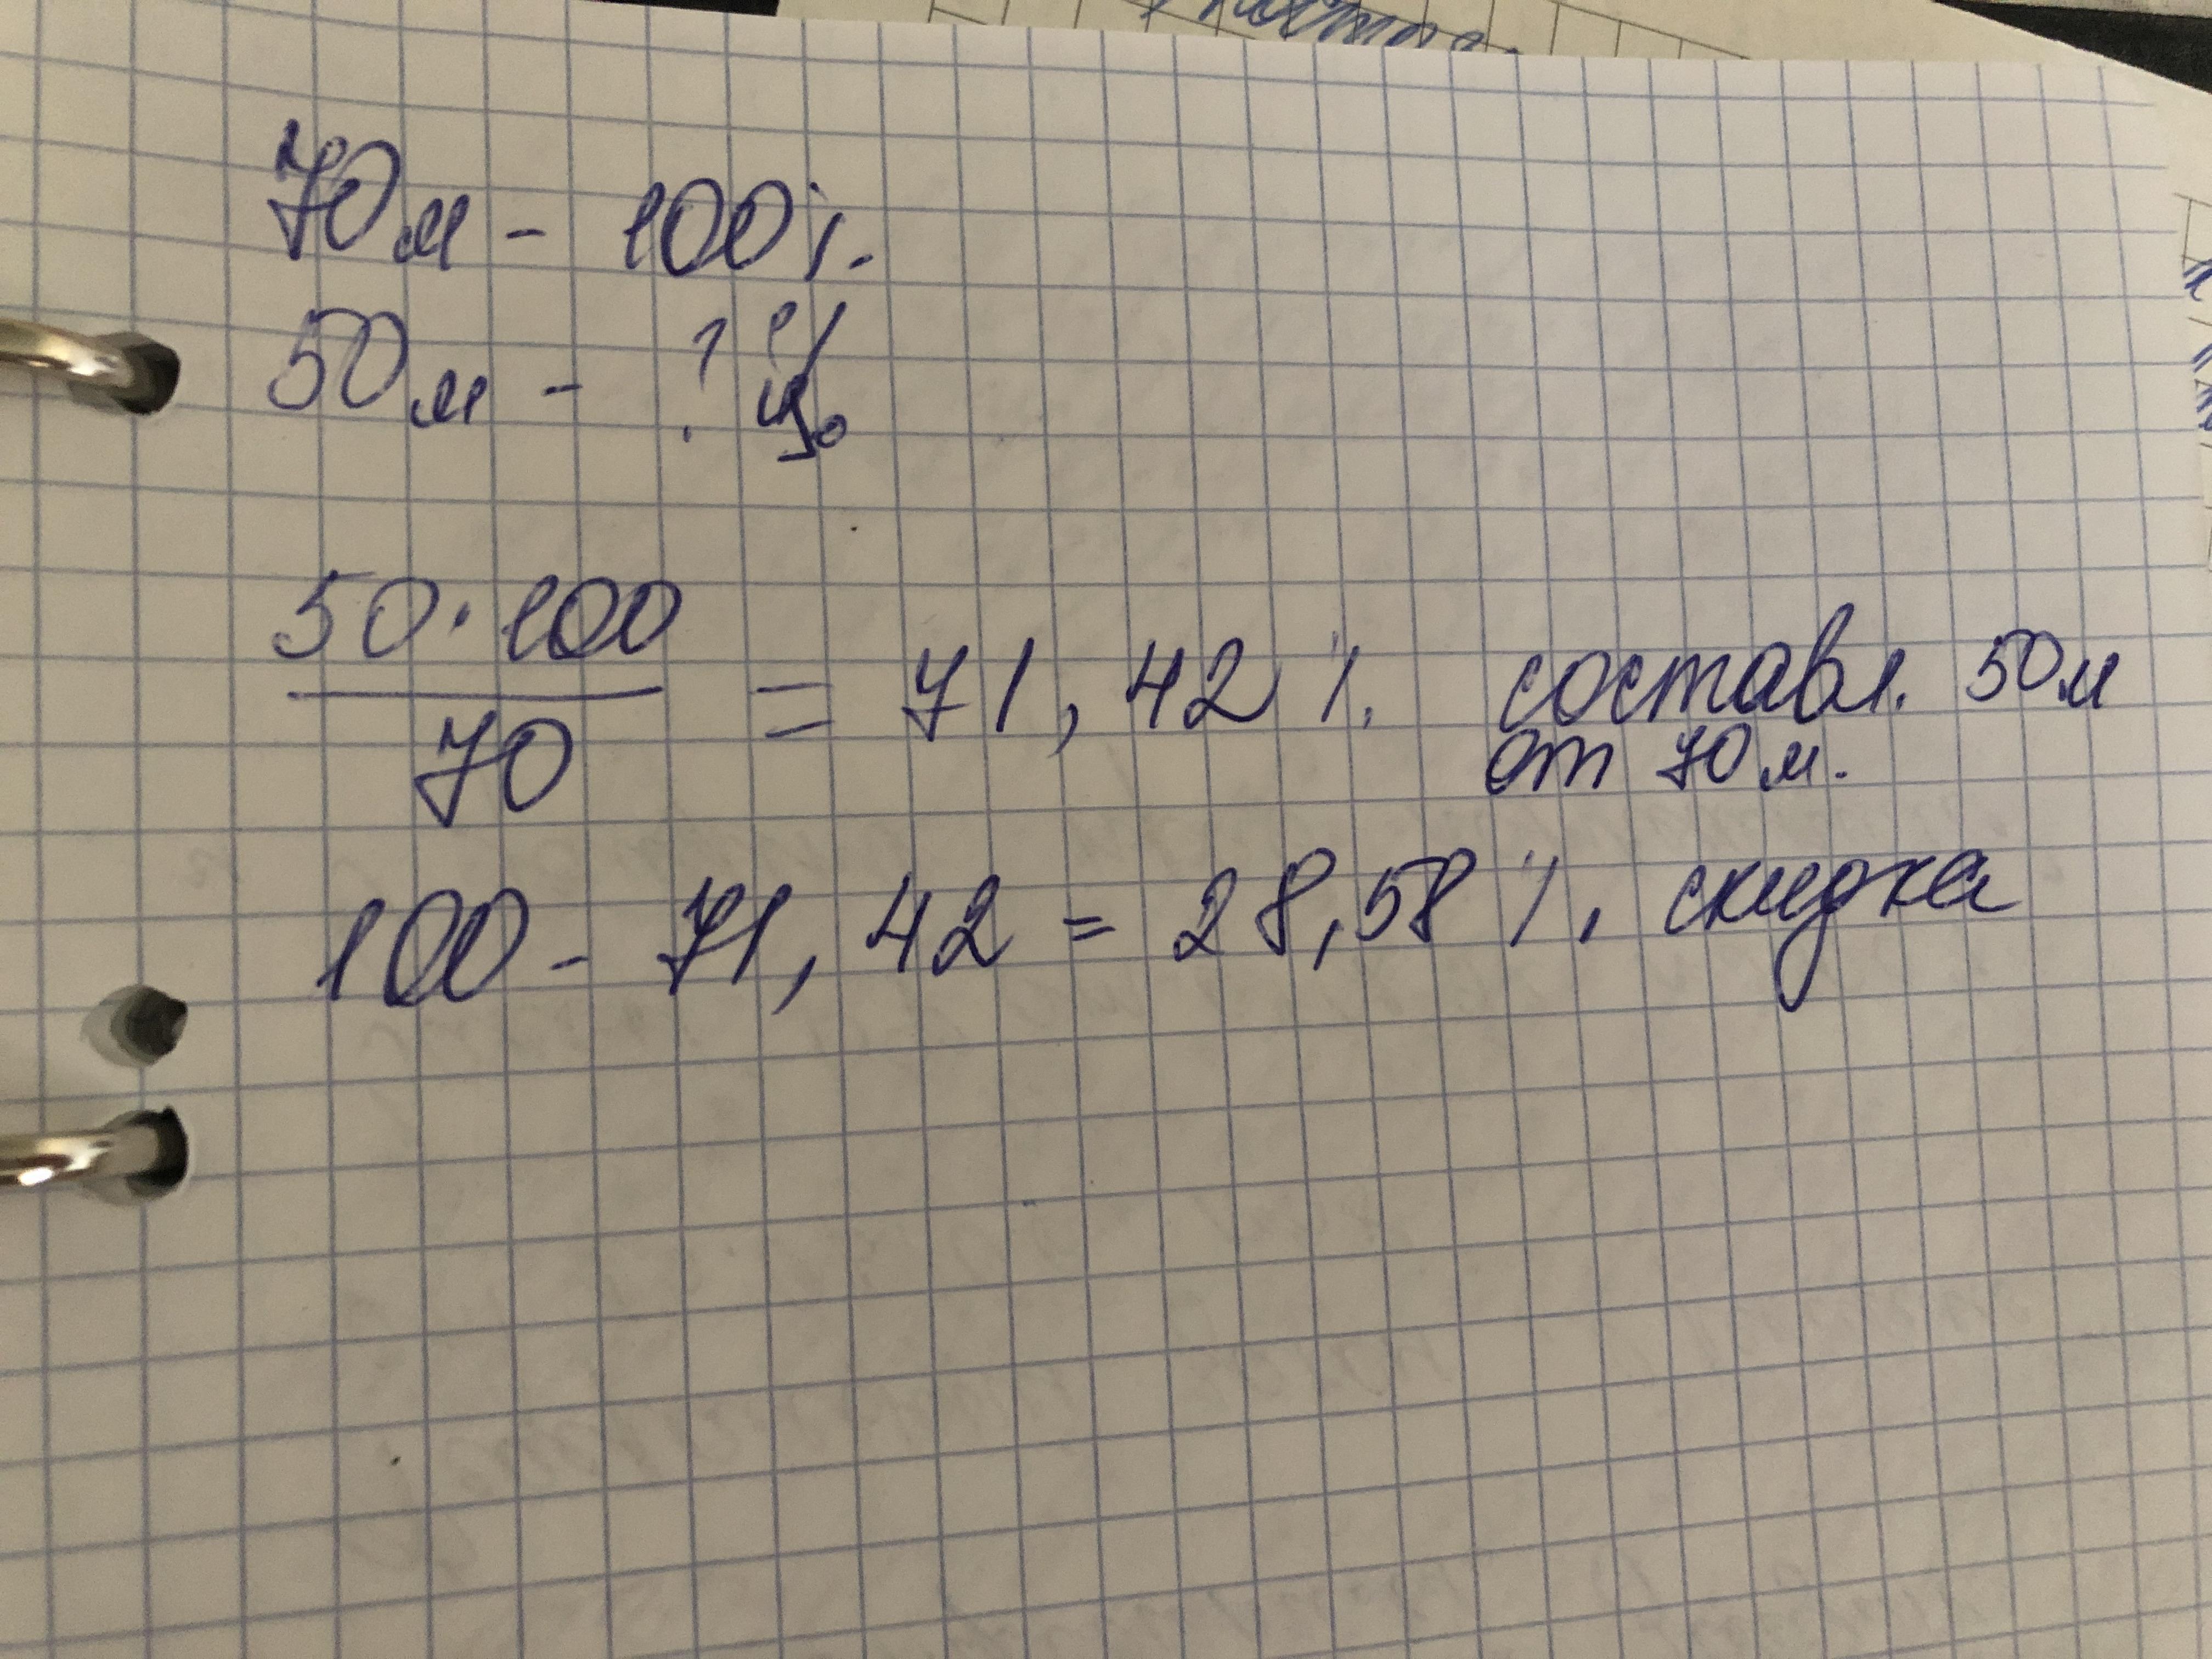 70м - 100%.
50м - ? %
50·100
70
= 71,42 %. составл. 50м
от 70м.
100 - 71,42 = 28,58 %. скидка